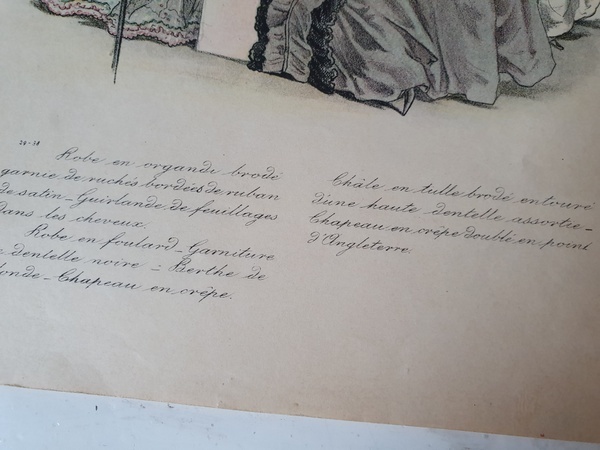 29-38
Robe en organdi brodé
garnie de ruchés bordées de ruban
de satin - Guirlande de feuillages
dans les cheveux.
Robe en foulard - Garniture
dentelle noire - Berthe de
Chapeau en crêpe.
Châle en tulle brodé entouré
d'une haute dentelle assortie -
Chapeau en crêpe doublé en point
d'Angleterre.